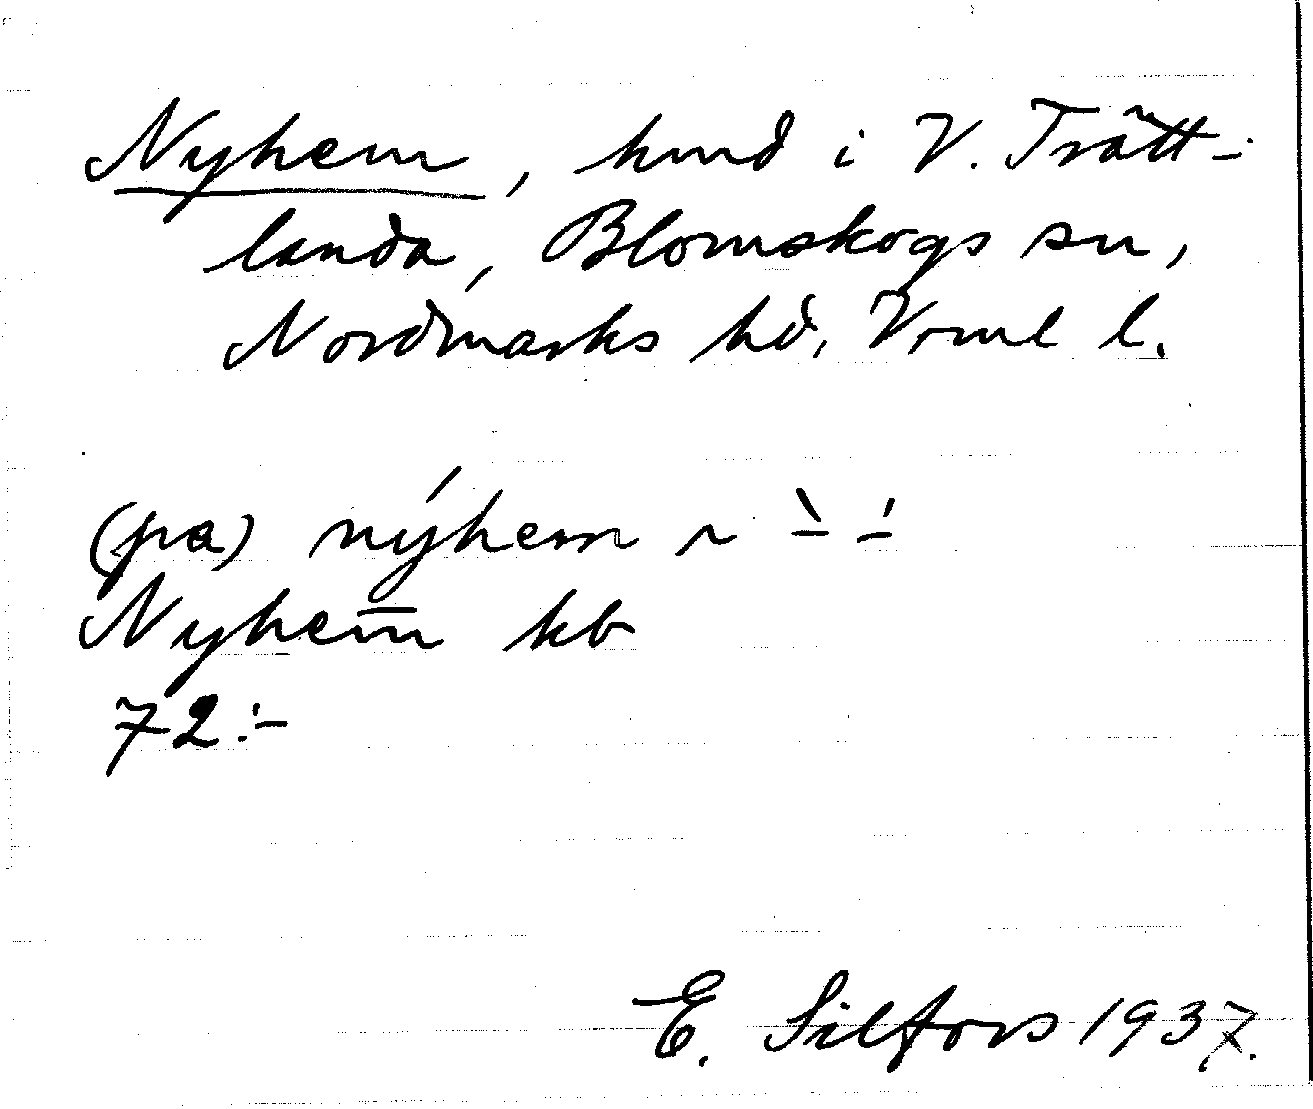 Nyhem, hmd i V. Trätt-
landa, Blomskogs sn,
Nordmarks hd, Vrml l.
(pa) nýhem ~ \– ́–
Nyhem̄ kb
72:-
E. Silfors 1937.